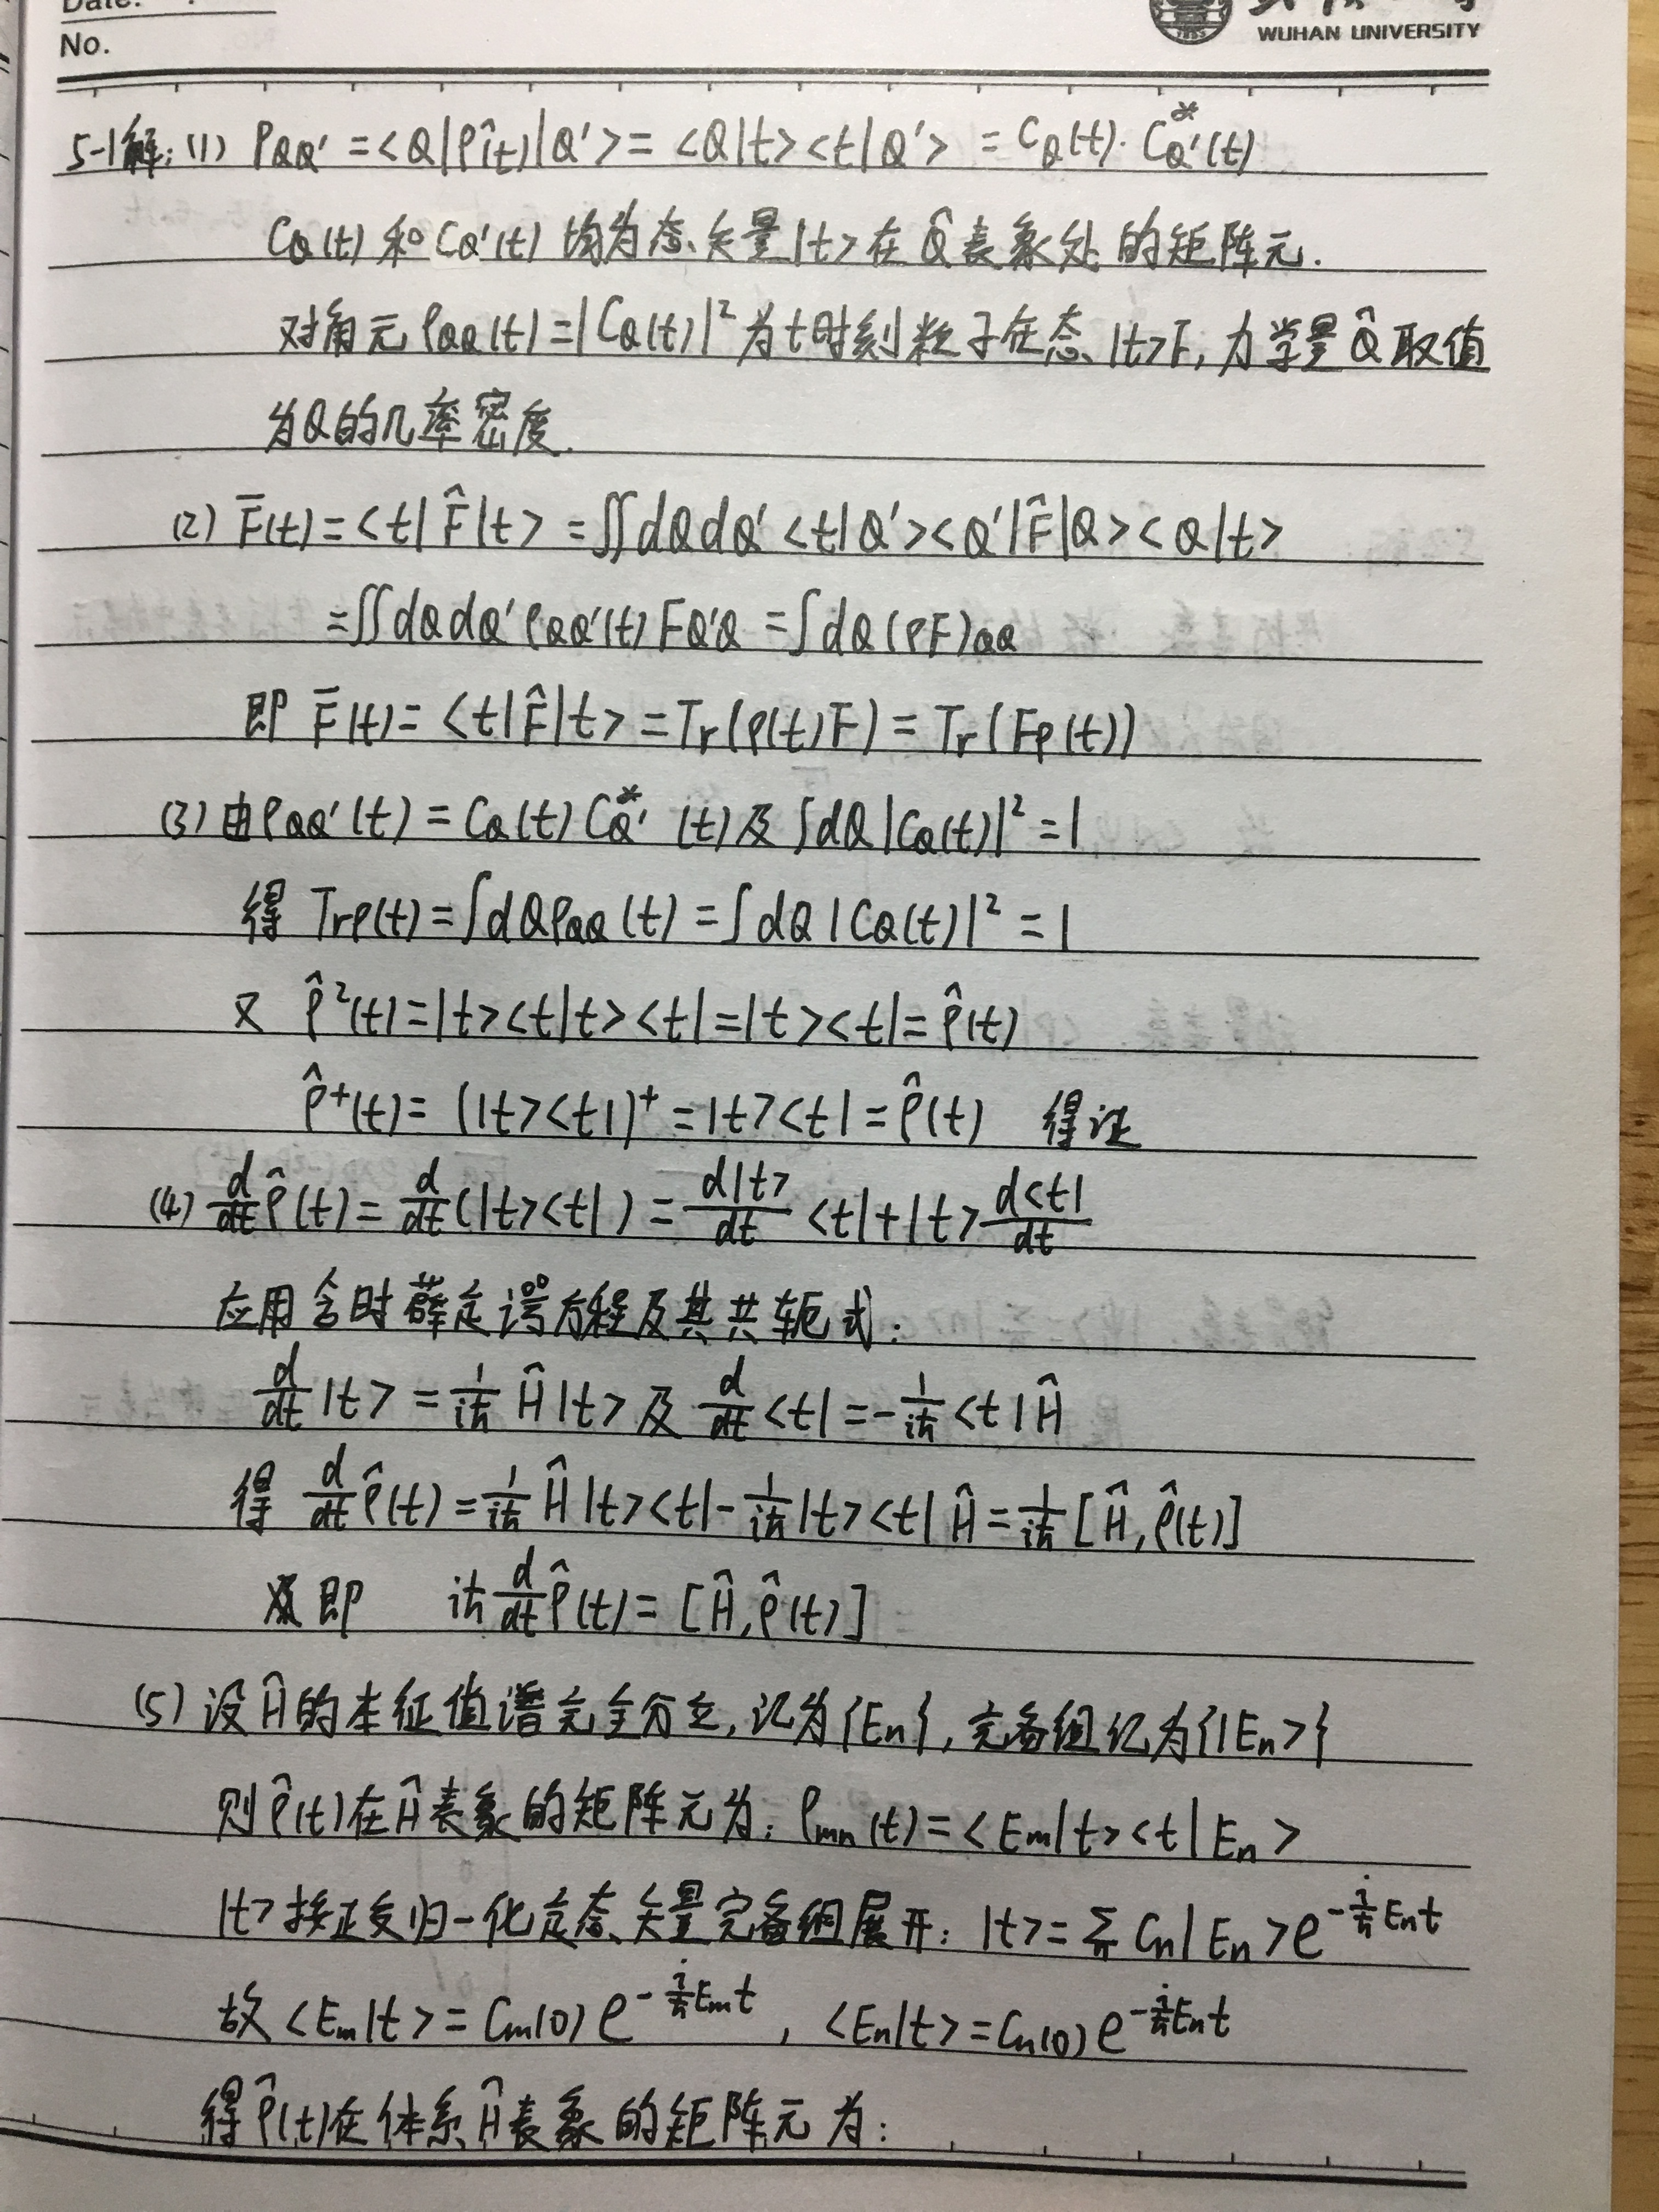 Date:
No.
WUHAN UNIVERSITY
5-1解: (1) ρQQ' = <Q|ρ̂(t)|Q'> = <Q|t><t|Q'> = CQ(t)·C*Q'(t)
CQ(t) 和 CQ'(t) 均为态矢量|t>在Q̂表象处的矩阵元.
对角元ρQQ(t)=|CQ(t)|²为t时刻粒子在态|t>下,力学量Q̂取值
为Q的几率密度.
(2) F̄(t) = <t|F̂|t> = ∬dQdQ'<t|Q'><Q'|F̂|Q><Q|t>
=∬dQdQ'ρQQ'(t)FQ'Q = ∫dQ(ρF)QQ
即 F̄(t) = <t|F̂|t> = Tr(ρ(t)F) = Tr(Fρ(t))
(3) 由ρQQ'(t) = CQ(t)C*Q'(t)及∫dQ|CQ(t)|² = 1
得 Trρ(t) = ∫dQρQQ(t) = ∫dQ|CQ(t)|² = 1
又 ρ̂²(t)=|t><t|t><t|=|t><t|=ρ̂(t)
ρ̂⁺(t) = (|t><t|)⁺ = |t><t| = ρ̂(t) 得证
(4) d/dt ρ̂(t) = d/dt(|t><t|) = d|t>/dt <t|+|t> d<t|/dt
应用含时薛定谔方程及其共轭式:
d/dt|t> = 1/iħ Ĥ|t> 及 d/dt<t| = -1/iħ<t|Ĥ
得 d/dt ρ̂(t) = 1/iħ Ĥ|t><t| - 1/iħ|t><t|Ĥ = 1/iħ[Ĥ,ρ̂(t)]
即 iħ d/dt ρ̂(t) = [Ĥ,ρ̂(t)]
(5) 设Ĥ的本征值谱完全分立,记为{En},完备组记为{|En>}
则ρ̂(t)在Ĥ表象的矩阵元为: ρmn(t) = <Em|t><t|En>
|t>按正交归一化定态矢量完备组展开: |t> = Σn Cn|En>e^(-i/ħ Ent)
故<Em|t> = Cm(0)e^(-i/ħ Emt), <En|t> = Cn(0)e^(-i/ħ Ent)
得ρ̂(t)在体系Ĥ表象的矩阵元为: